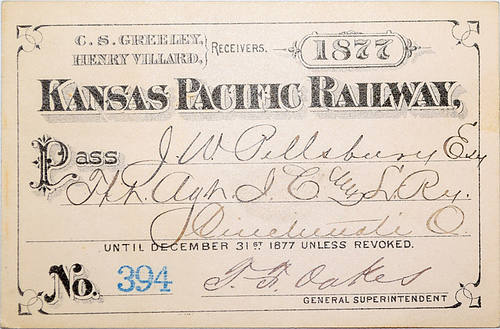 C. S. GREELEY,
HENRY VILLARD,
RECEIVERS.
1877
KANSAS PACIFIC RAILWAY,
Pass J. W. Pillsbury Esq
Agt. I. C. L. Ry.
Cincinnati O.
UNTIL DECEMBER 31ST 1877 UNLESS REVOKED.
No. 394
T. F. Oakes
GENERAL SUPERINTENDENT